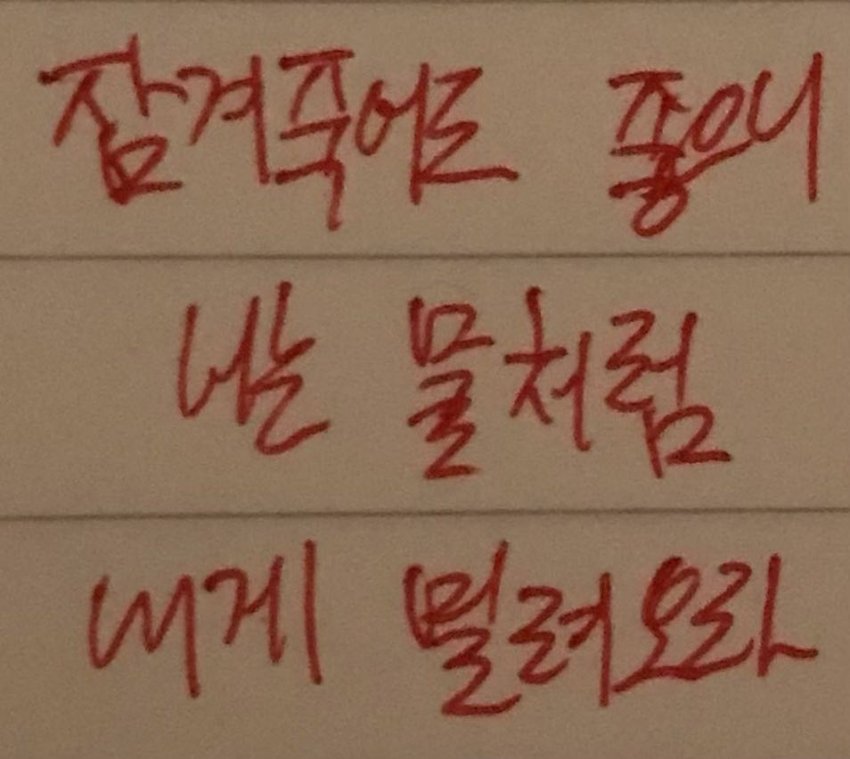 잠겨죽어도 좋으니
난 물처럼
내게 밀려오라